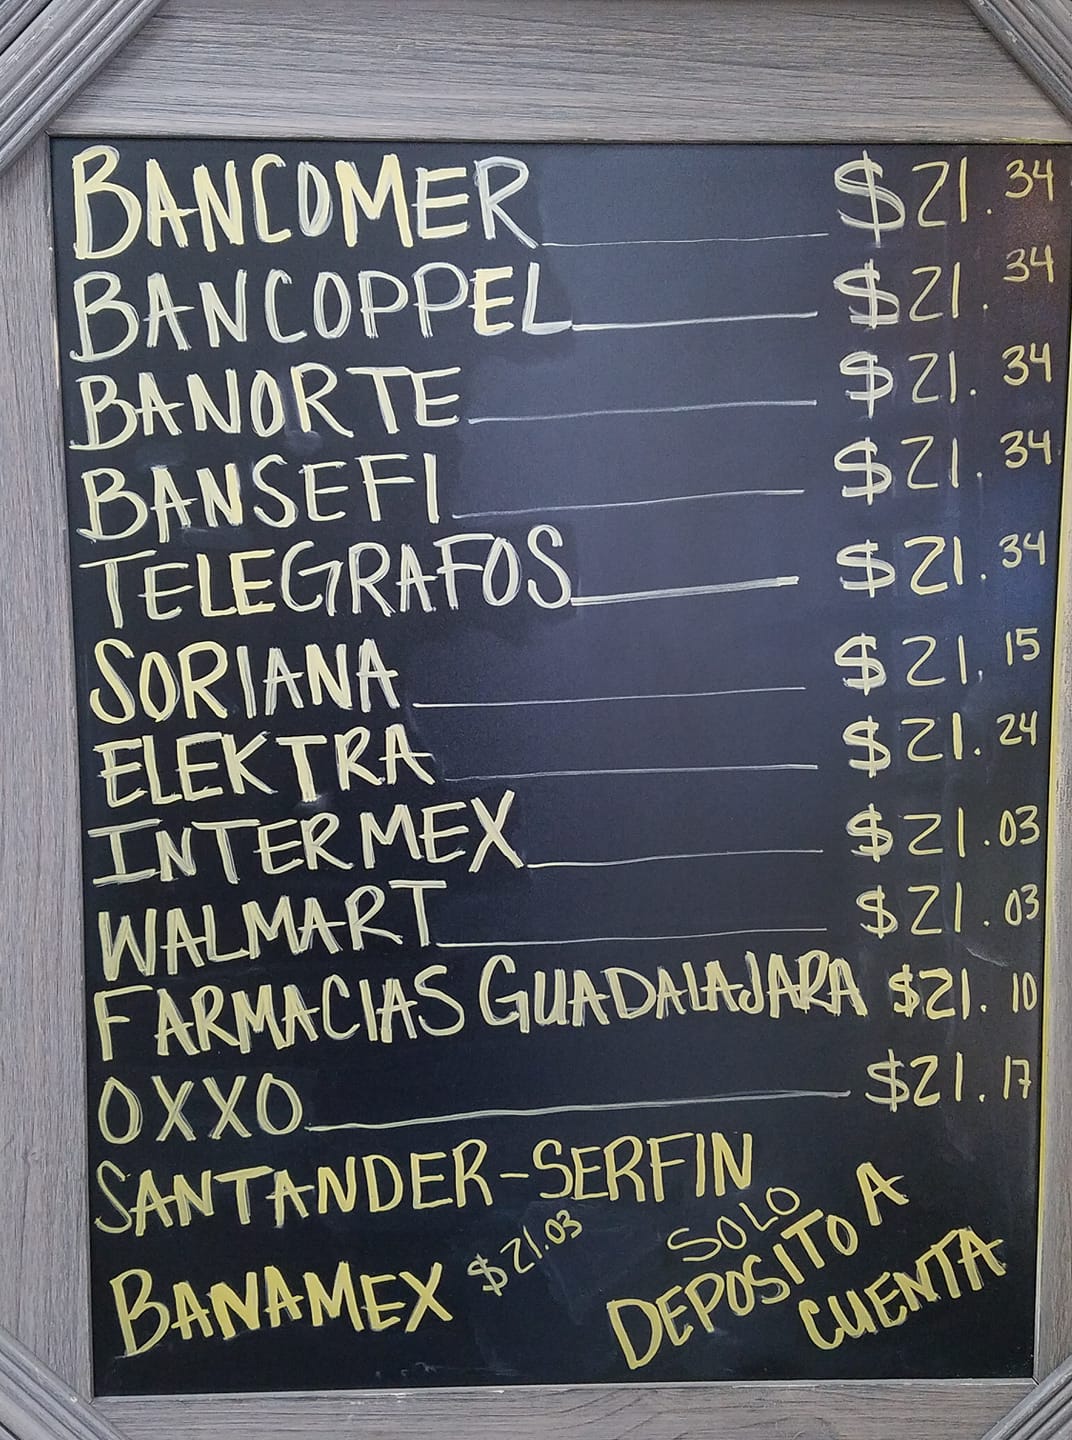 BANCOMER $21.34
BANCOPPEL $21.34
BANORTE $21.34
BANSEFI $21.34
TELEGRAFOS $21.34
SORIANA $21.15
ELEKTRA $21.24
INTERMEX $21.03
WALMART $21.03
FARMACIAS GUADALAJARA $21.10
OXXO $21.17
SANTANDER-SERFIN
BANAMEX $21.03
SOLO
DEPOSITO A
CUENTA